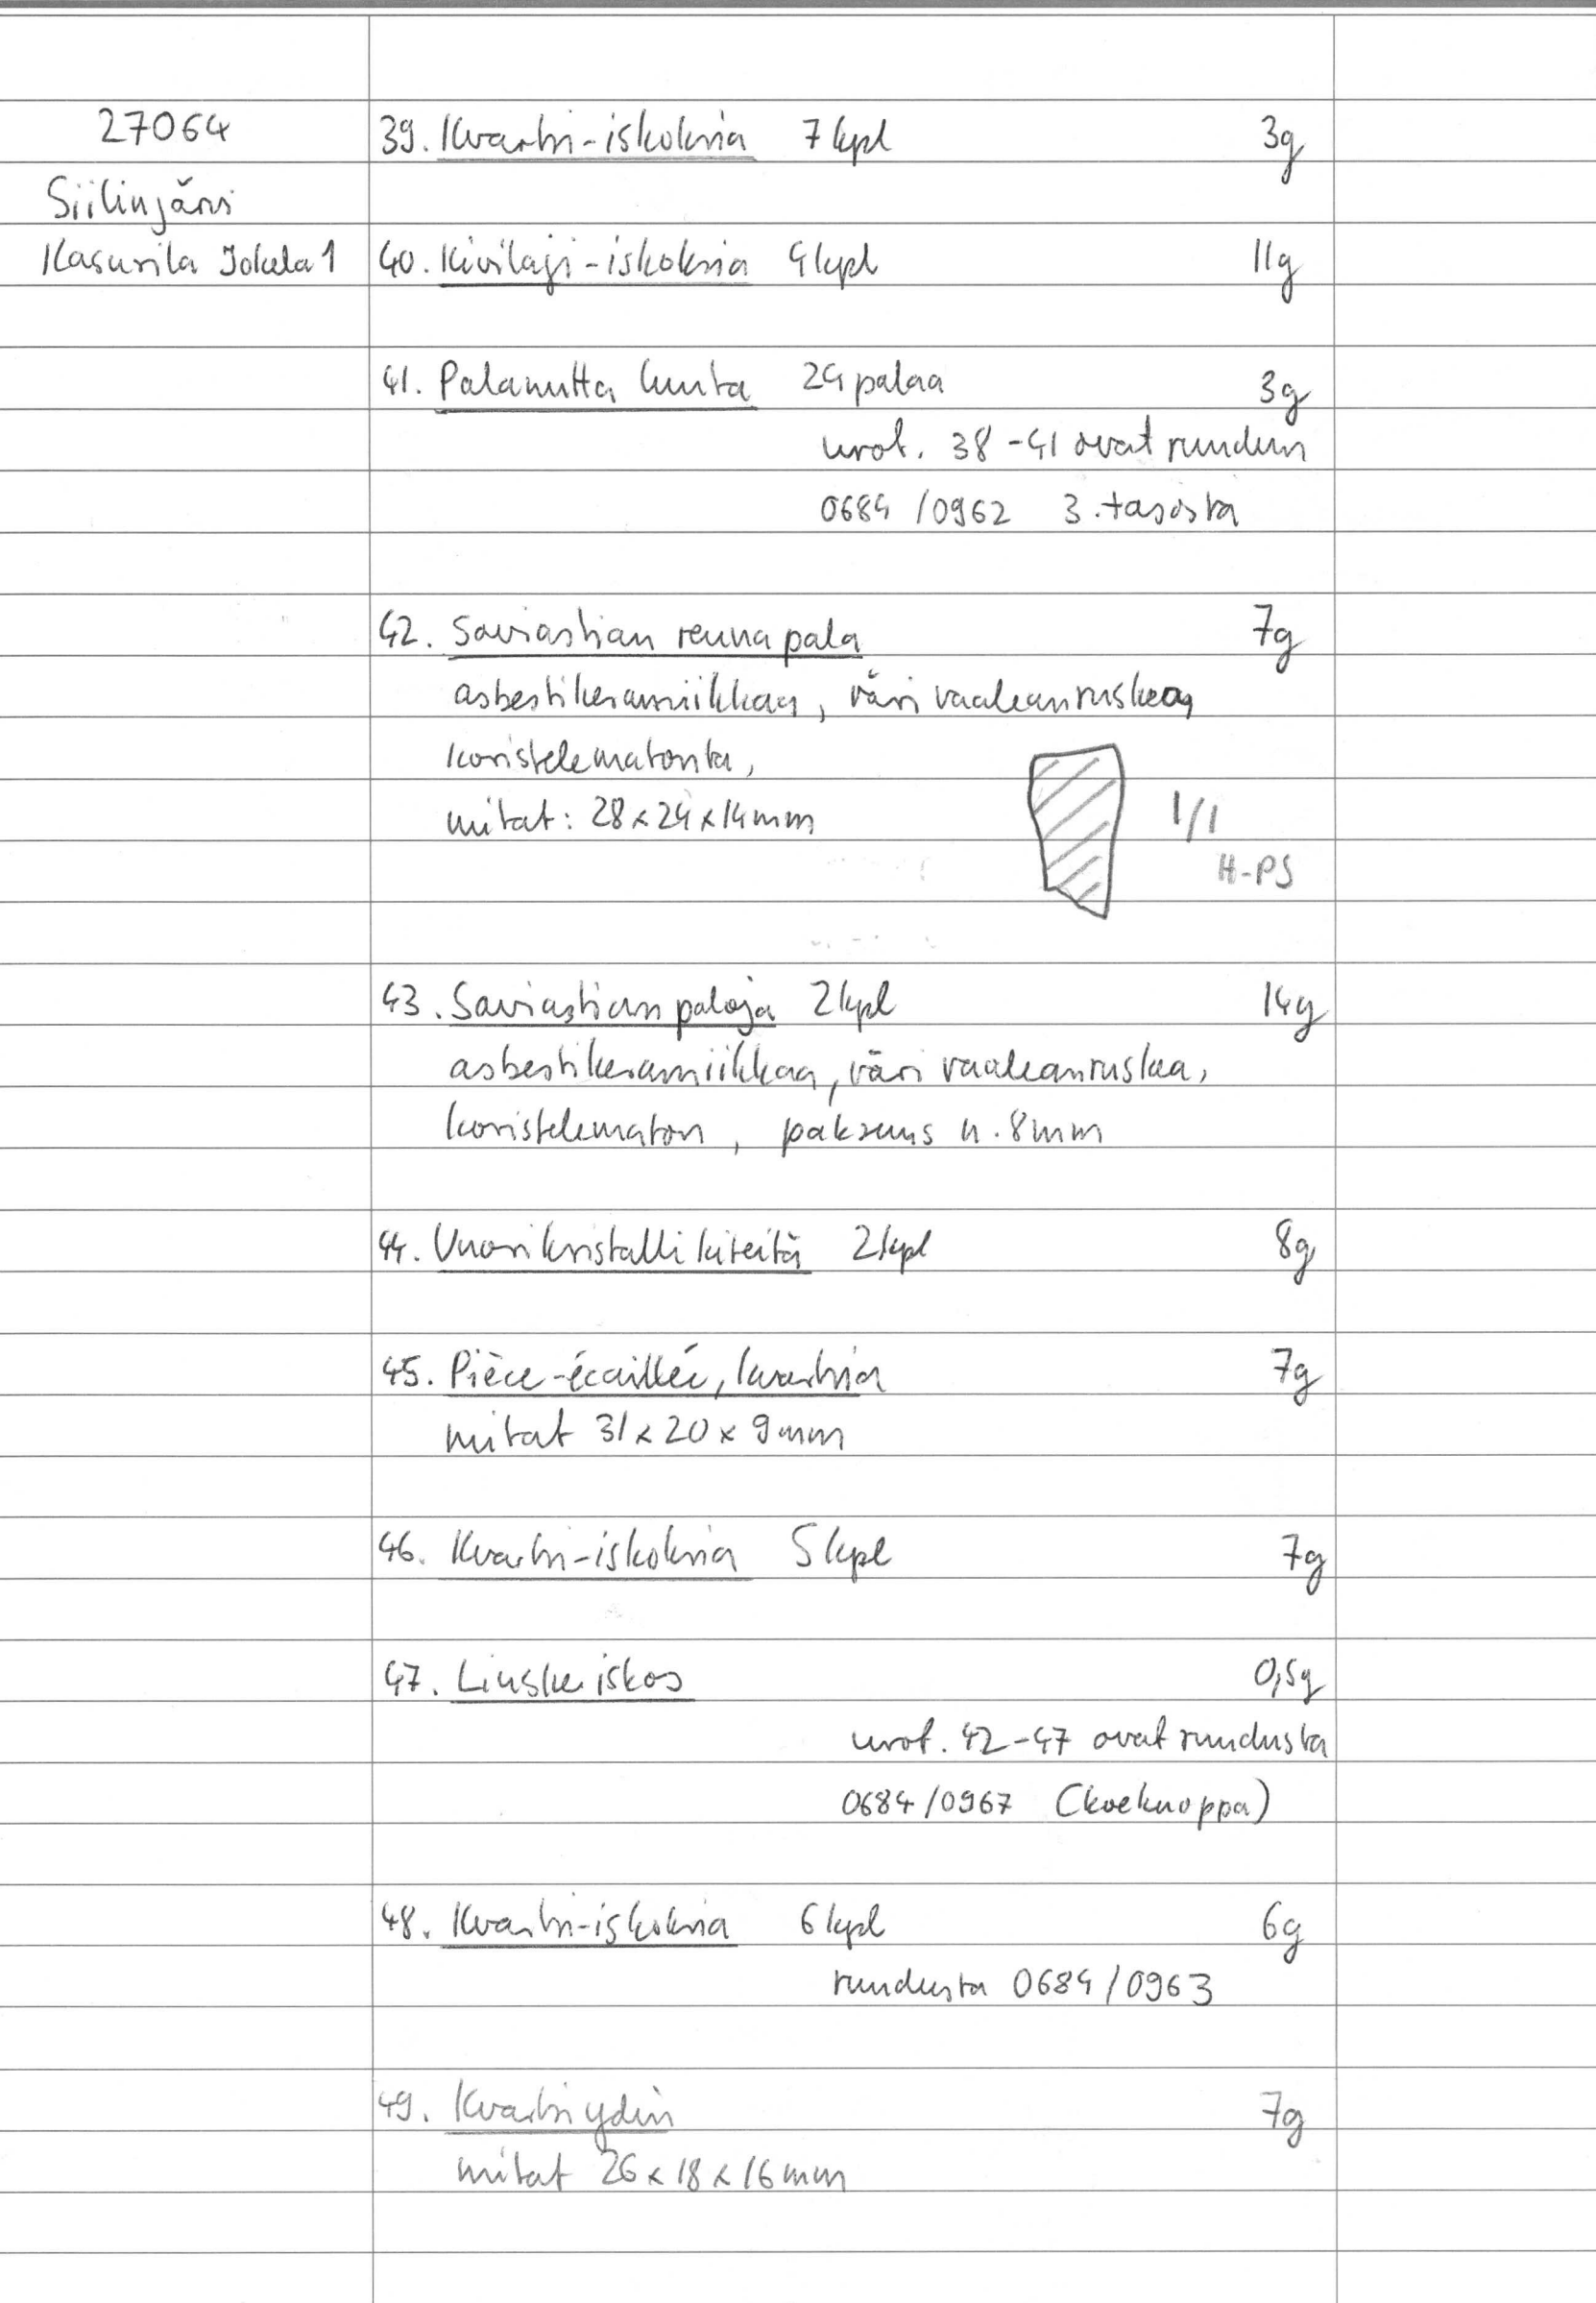 27064
Siilinjärvi
Kasurila Jokela 1
39. Kvartsi-iskoksia 7 kpl 3g
40. Kivilaji-iskoksia 4 kpl 11g
41. Palanutta luuta 24 palaa 3g
nrot. 38-41 ovat ruudun
0684/0962 3. tasosta
42. Saviastian reunapala 7g
asbestikeramiikkaa, väri vaaleanruskea
koristelematonta,
mitat: 28x24x14mm
1/1
H-PS
43. Saviastian paloja 2 kpl 14g
asbestikeramiikkaa, väri vaaleanruskea,
koristelematon, paksuus n. 8mm
44. Vuorikristallikiteitä 2 kpl 8g
45. Pièce-écaillée, kvartsia 7g
mitat 31x20x9mm
46. Kvartsi-iskoksia 5 kpl 7g
47. Liuskeiskos 0,5g
nrot. 42-47 ovat ruudusta
0684/0967 (koekuoppa)
48. Kvartsi-iskoksia 6 kpl 6g
ruudusta 0684/0963
49. Kvartsiydin 7g
mitat 26x18x16mm